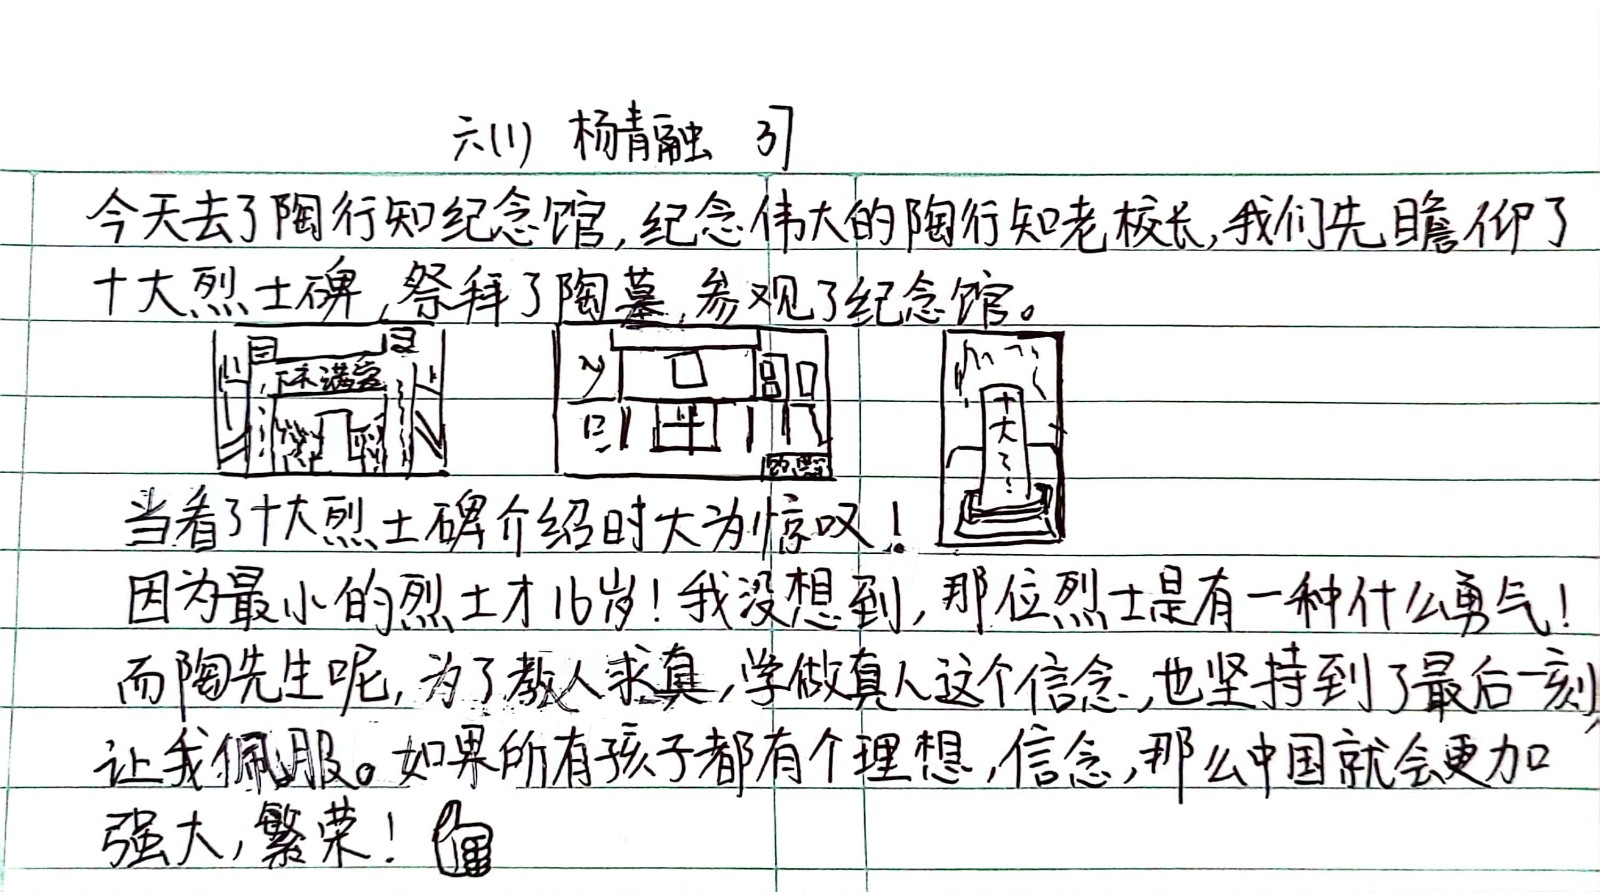 六(1) 杨青融
今天去了陶行知纪念馆,纪念伟大的陶行知老校长,我们先瞻仰了
十大烈士碑,祭拜了陶墓,参观了纪念馆。
十大
当看了十大烈士碑介绍时大为惊叹!
因为最小的烈士才16岁!我没想到,那位烈士是有一种什么勇气!
而陶先生呢,为了教人求真,学做真人这个信念,也坚持到了最后一刻,
让我佩服。如果所有孩子都有个理想,信念,那么中国就会更加
强大,繁荣!